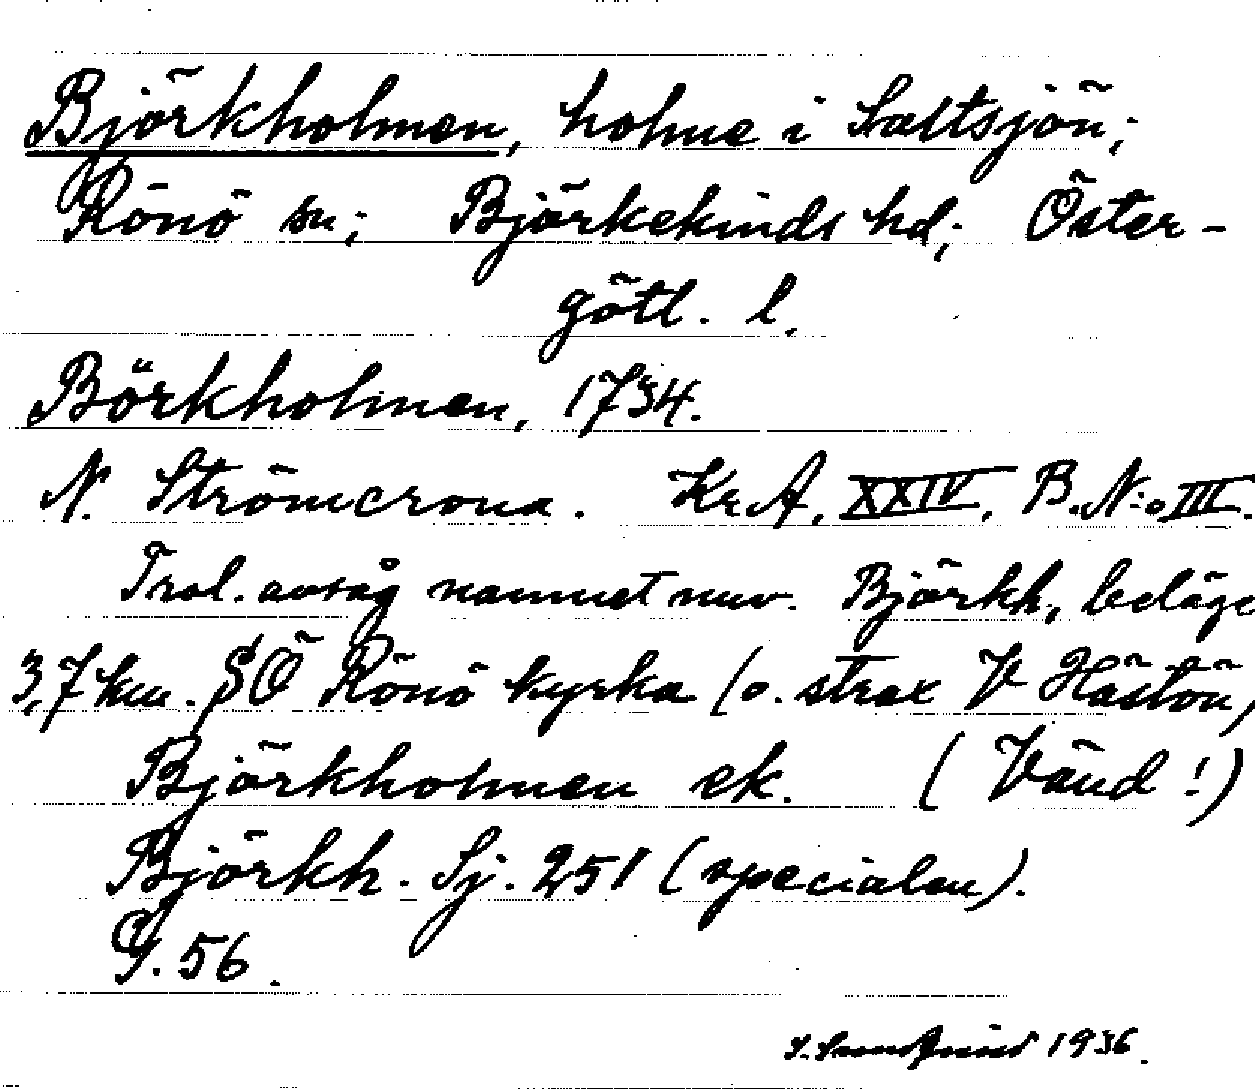 Björkholmen, holme i Saltsjön;
Rönö sn; Björkekinds hd; Öster-
götl. l.
Börkholmen, 1734.
N. Strömcrona. Kr.A. XXIV, B. N:o III.
Trol. avsåg namnet nuv. Björkh, beläge
3,7 km. SÖ Rönö kyrka (o. strax V Hästön,
Björkholmen ek. (Vänd!)
Björkh. Sj. 251 (specialen).
G. 56.
1936.